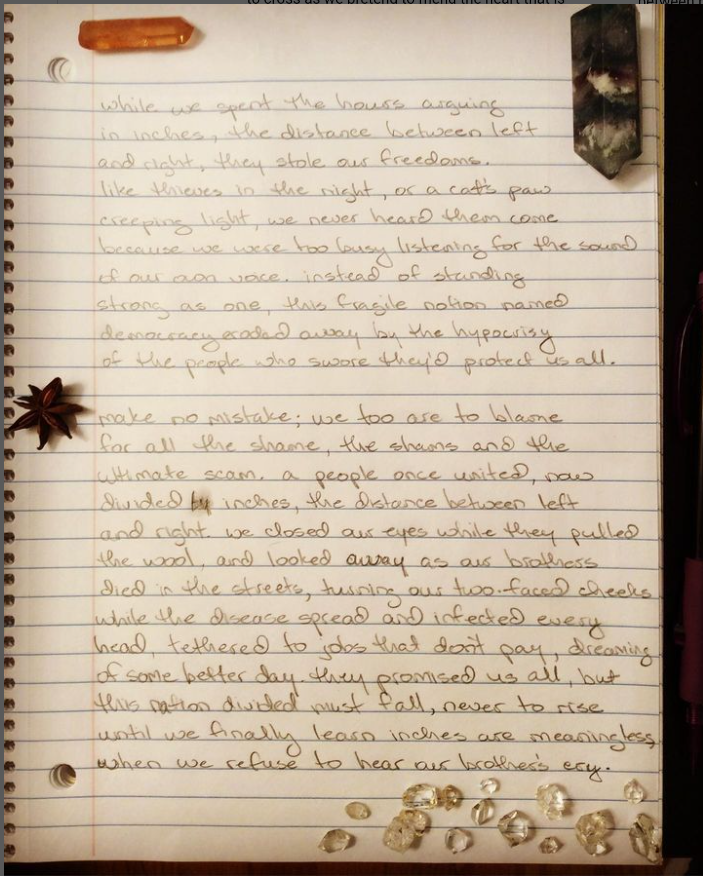 to cross as we pretend to mend the heart that is
between
while we spent the hours arguing
in inches, the distance between left
and right, they stole our freedoms.
like thieves in the night, or a cat's paw
creeping light, we never heard them come
because we were too busy listening for the sound
of our own voice. instead of standing
strong as one, this fragile notion named
democracy eroded away by the hypocrisy
of the people who swore they'd protect us all.
make no mistake; we too are to blame
for all the shame, the shams and the
ultimate scam. a people once united, now
divided by inches, the distance between left
and right. we closed our eyes while they pulled
the wool, and looked away as our brothers
died in the streets, turning our two-faced cheeks
while the disease spread and infected every
head, tethered to jobs that don't pay, dreaming
of some better day. they promised us all, but
this nation divided must fall, never to rise
until we finally learn inches are meaningless,
when we refuse to hear our brother's cry.